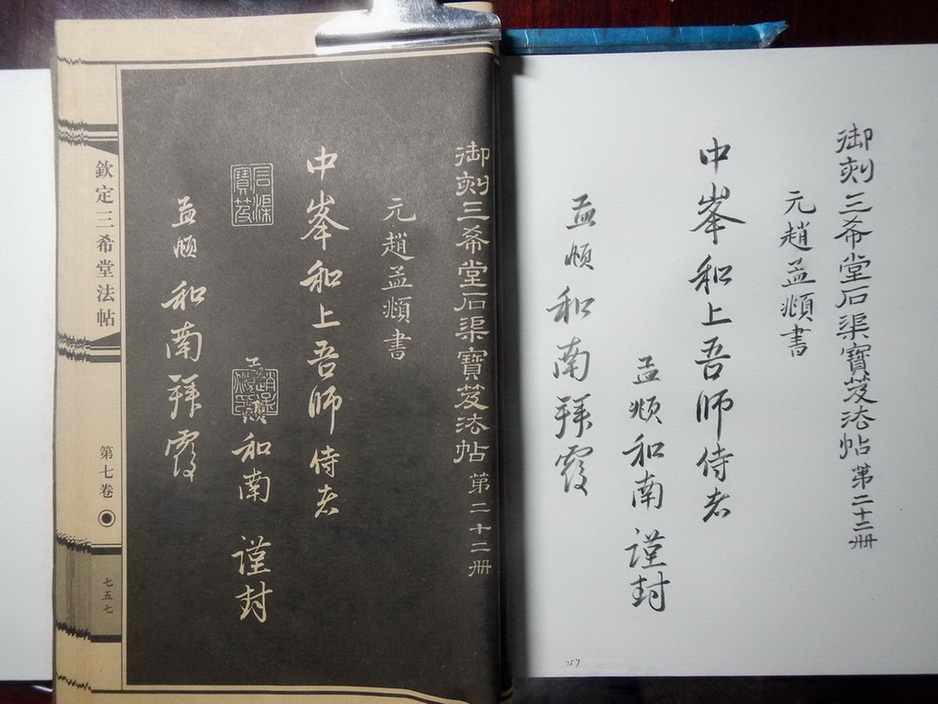 御刻三希堂石渠寶笈法帖 第二十二冊
元趙孟頫書
中峯和上吾師侍者
孟頫和南 謹封
孟頫和南拜覆
757
御刻三希堂石渠寶笈法帖 第二十二冊
元趙孟頫書
中峯和上吾師侍者
孟頫和南 謹封
石渠寶笈
孟頫和南拜覆
欽定三希堂法帖
第七卷
七五七